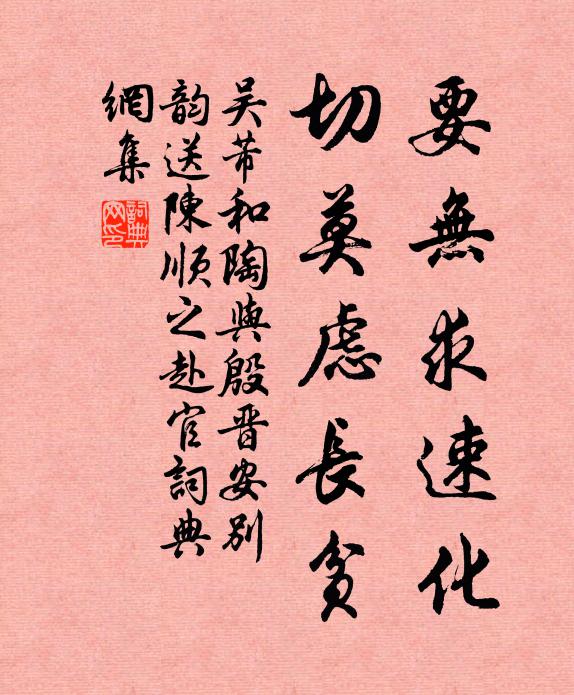 要無求速化
切莫慮長貧
吴芾和陶與殷晋安别
韵送陳順之赴官詞典
網集
詞典網印